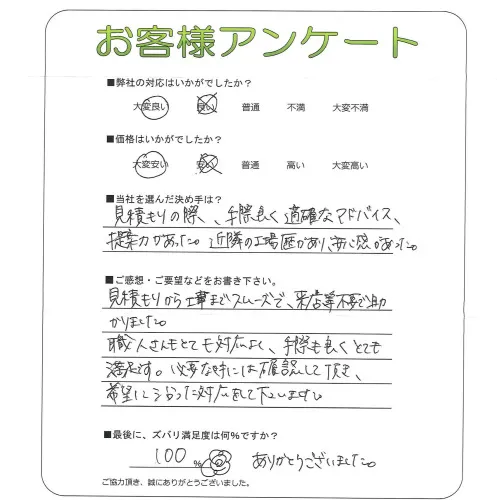 お客様アンケート
■弊社の対応はいかがでしたか?
大変良い 良い 普通 不満 大変不満
■価格はいかがでしたか?
大変安い 安い 普通 高い 大変高い
■当社を選んだ決め手は?
見積もりの際、、手際良く適確なアドバイス、
提案力があった。近隣の工場歴があり、安心感があった。
■ご感想・ご要望などをお書き下さい。
見積もりから工事までスムーズで、来店等不要で助
かりました。
職人さんもとても対応よく、手際も良くとても
満足です。必要な時には確認して頂き、
希望にそった対応をして下さいます。
■最後に、ズバリ満足度は何%ですか?
100 % ありがとうございました。
ご協力頂き、誠にありがとうございました。